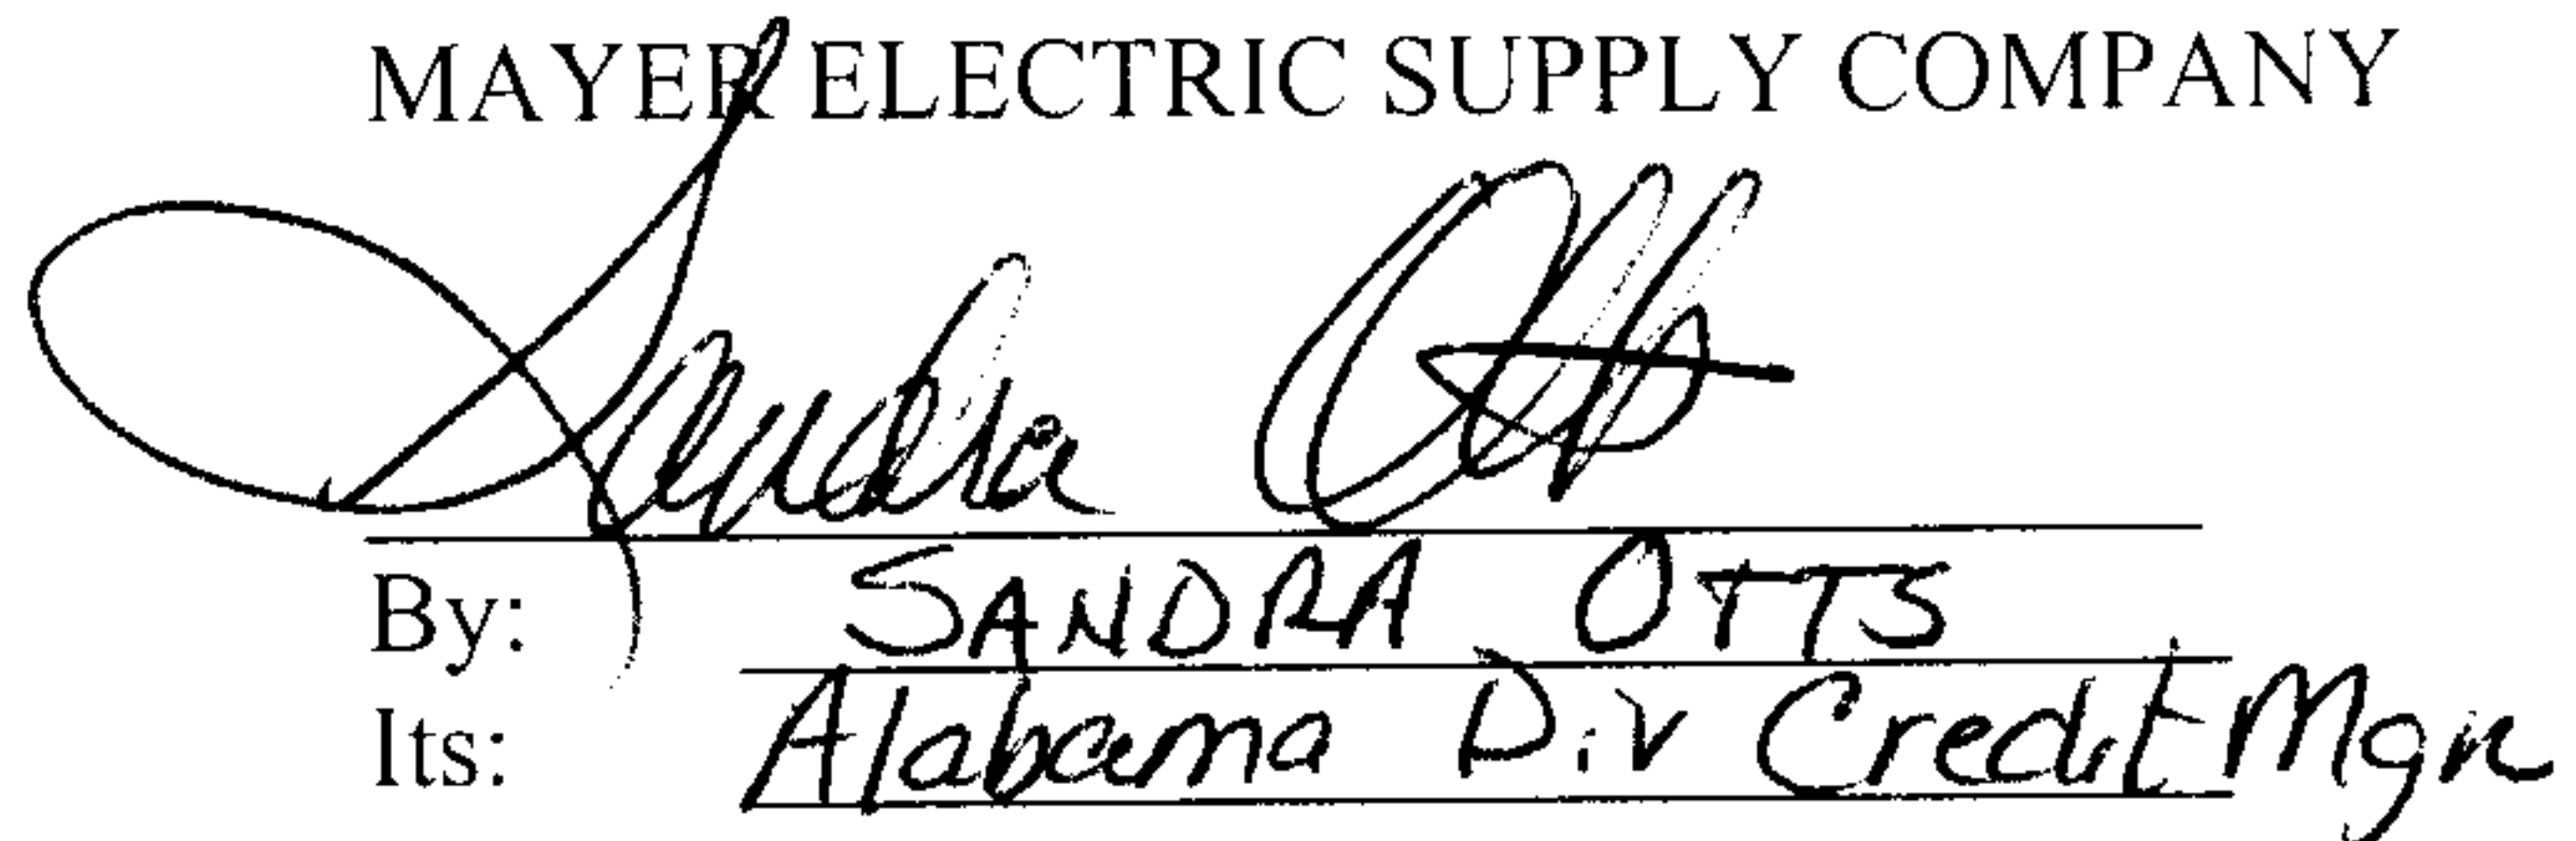 MAYER ELECTRIC SUPPLY COMPANY
Sandra Otts
By: SANDRA OTTS
Its: Alabama Div Credit Mgr